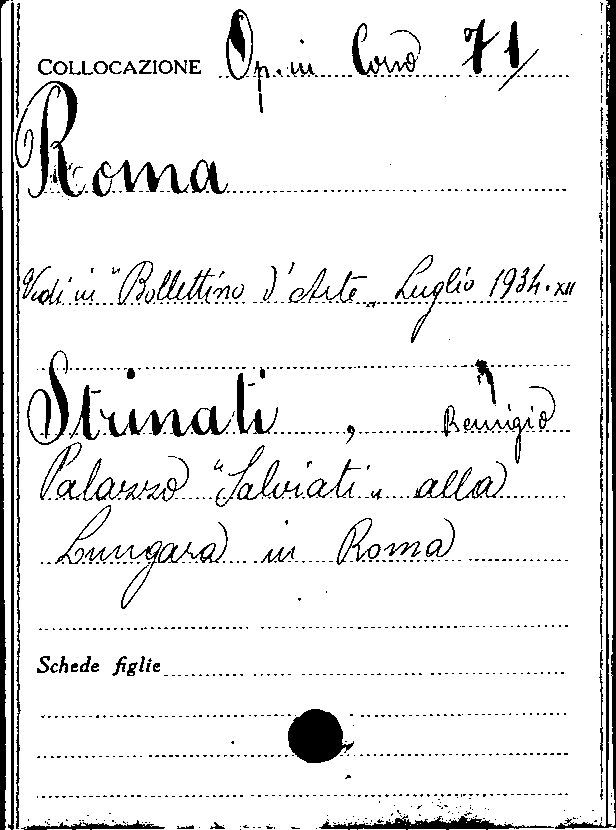 COLLOCAZIONE Op. in Corso 71/
Roma
Vedi in "Bollettino d'Arte„ Luglio 1934. XII
Strinati, Remigio
Palazzo "Salviati„ alla
Lungara in Roma
Schede figlie